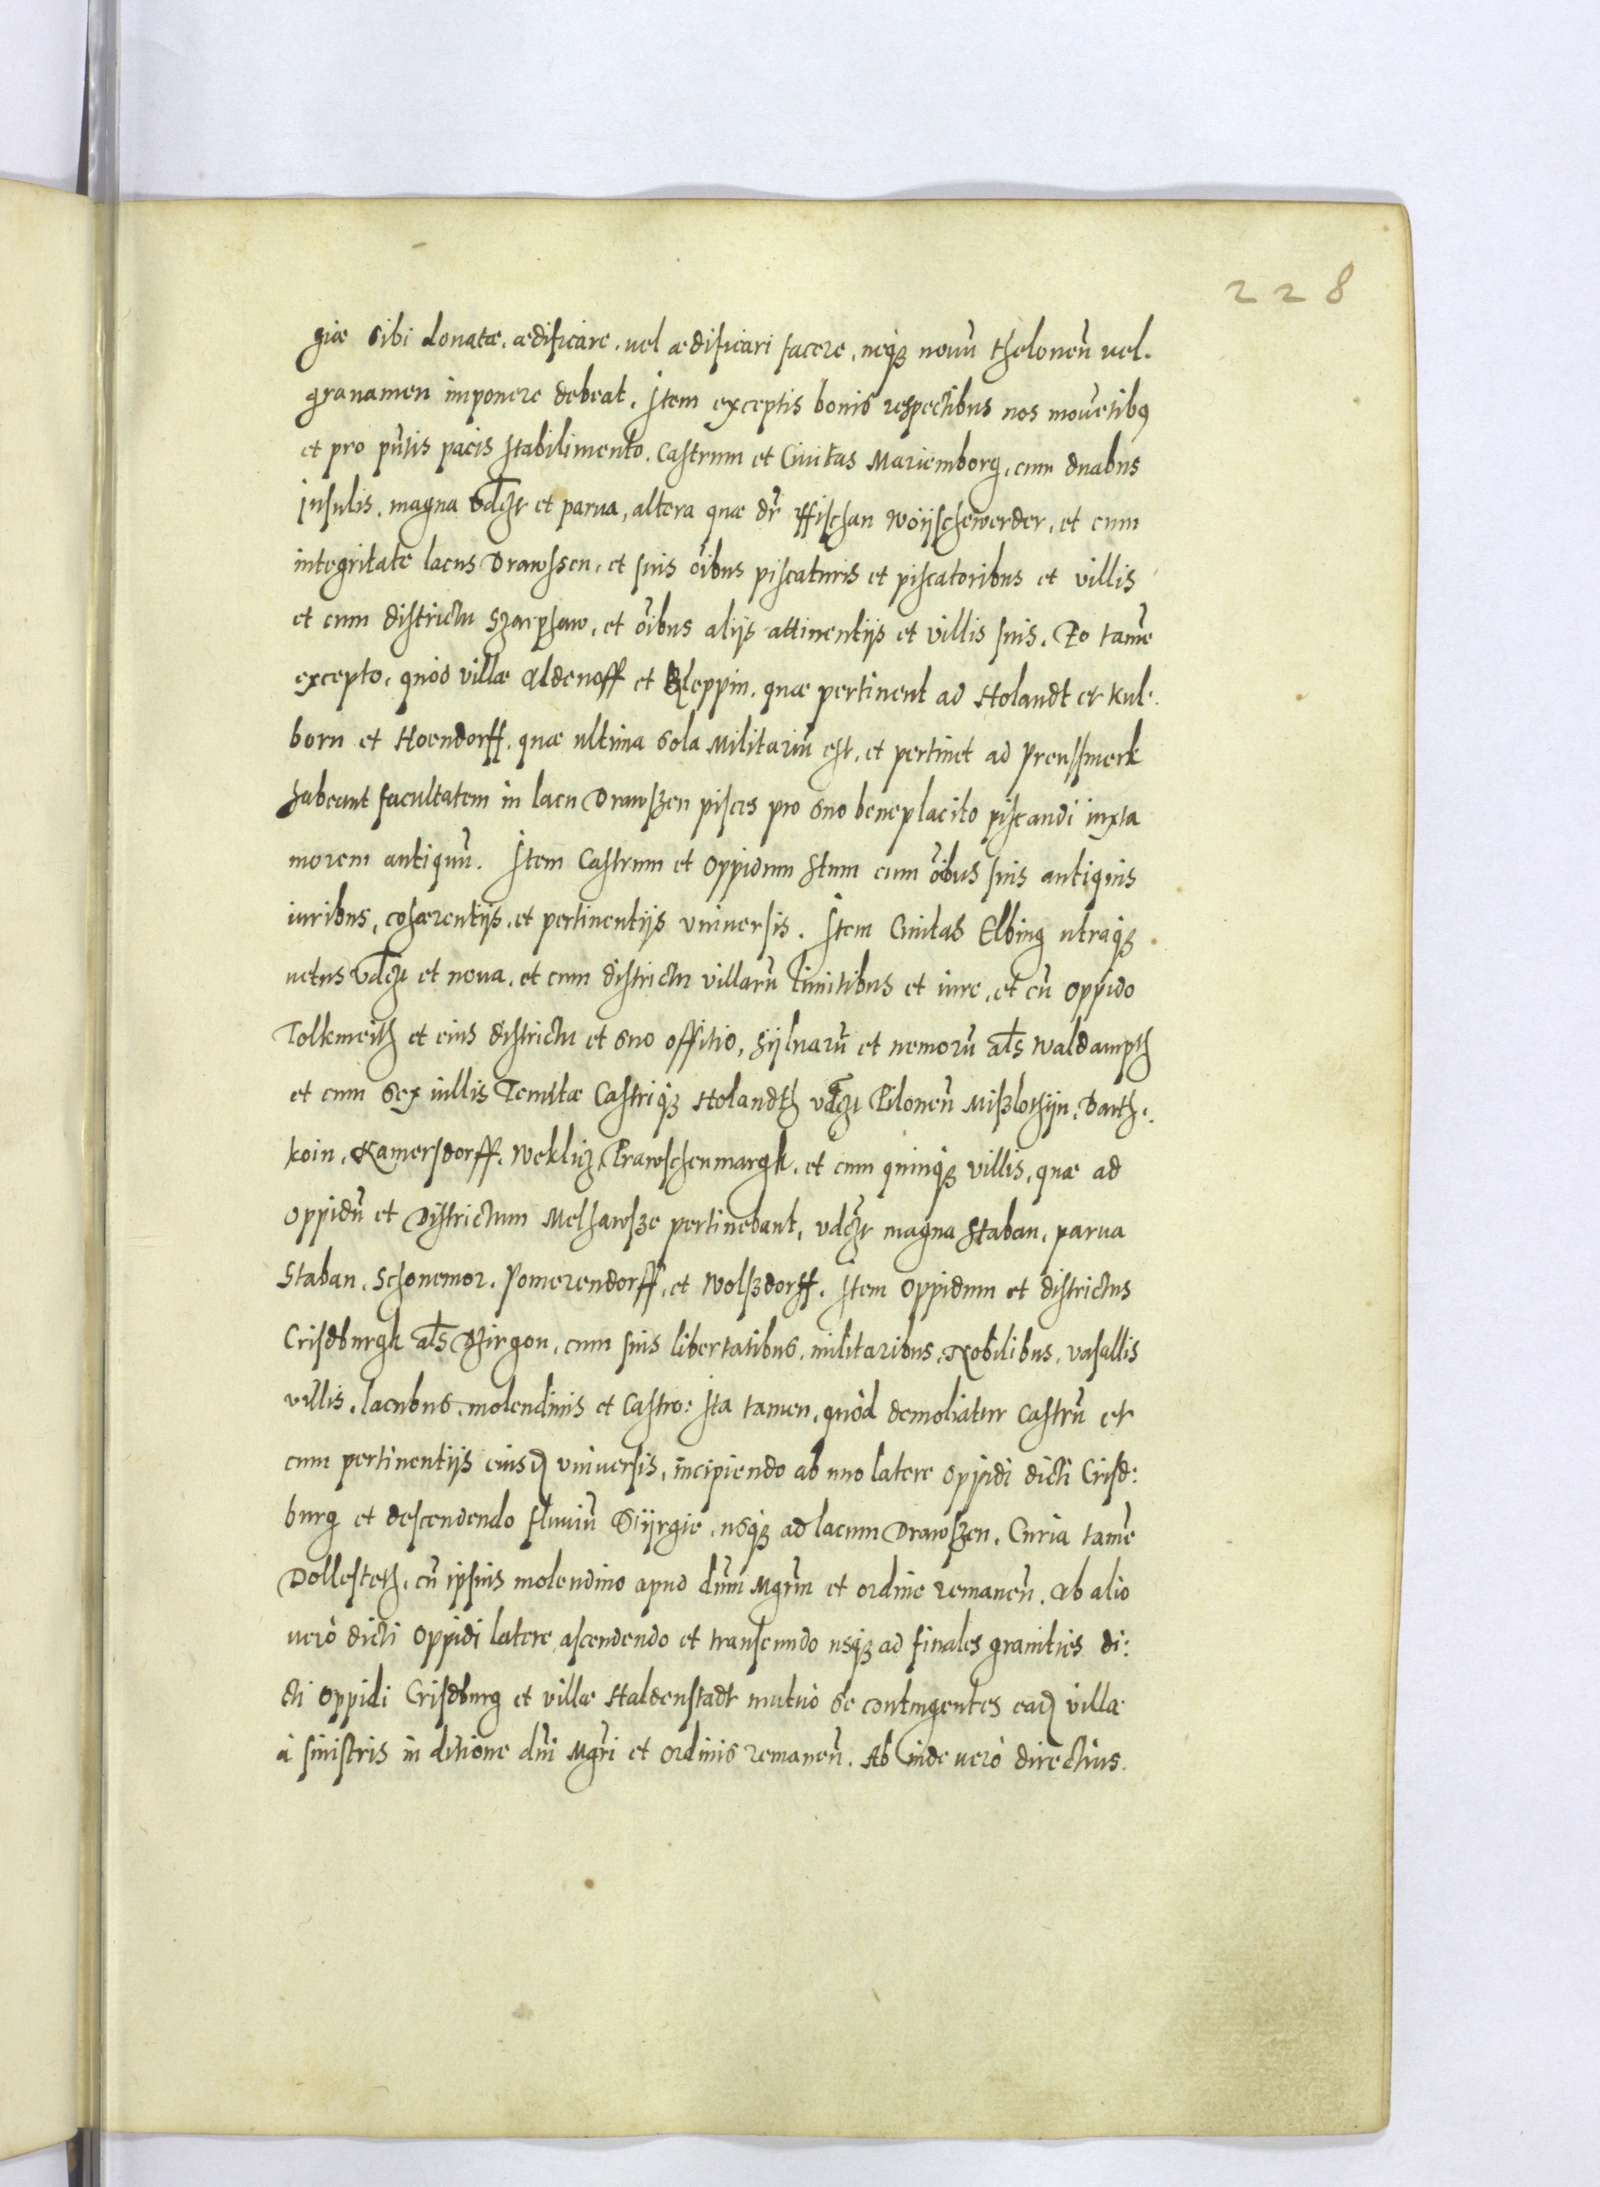 228
giæ sibi donatæ, ædificare, uel ædificari facere, neqꝫ nouũ theloneũ uel.
grauamen imponere debeat. Item exceptis bonis respectibus nos mouẽtibꝯ
et pro pñtis pacis stabilimento. Castrum et Ciuitas Mariemborg, cum duabus
insulis, magna vdlꝫt et parua, altera quæ dr̃ ffischan Woÿschewerder, et cum
integritate lacus Drawssen, et suis õibus piscaturis et piscatoribus et villis
et cum districtu Szarpaw, et õibus alijs attinentijs et villis suis. Eo tamẽ
excepto, quòd villæ Aldenoff et Kleppin, quæ pertinent ad Holandt et Kul.
born et Hoendorff, quæ ultima sola Militariũ est, et pertinet ad Preussmerk
habeant facultatem in lacu Drawszen pisces pro suo beneplacito piscandi iuxta
morem antiquũ. Item Castrum et Oppidum Stum cum õibus suis antiquis
iuribus, cohærentijs, et pertinentijs vniuersis. Item Ciuitas Elbing utraqꝫ
uetus vdlꝫt et noua, et cum districtu villarũ limitibus et iure, et cũ Oppido
Tolkmeith et eius districtu et suo offitio, sÿluarũ et nemorũ als Waldampth
et cum sex uillis Tenutæ Castriqꝫ Holandth vdlꝫt Pilonen̄ Miszlothÿn, Barth.
koin, Kamersdorff, Wekliz, Prawschenmargk, et cum quinqꝫ villis, quæ ad
Oppidũ et Districtum Melhawsze pertinebant, vdlꝫt magna Staban, parua
Staban, Schonemor, Pomerendorff, et Wolszdorff. Item Oppidum et districtus
Crisdburgk als Dzirgon, cum suis libertatibus, militaribus, Nobilibus, vasallis
villis, lacubus, molendinis et Castro: Ita tamen, quòd demoliatur Castrũ et
cum pertinentijs eiusd vniuersis, incipiendo ab uno latere Oppidi dicti Crisd:
burg et descendendo fluuiũ Sÿrgie, usqꝫ ad lacum Drawszen. Curia tamẽ
Dollesteth, cũ ipsius molendino apud dñm Mgr̃m et ordinẽ remaneñ. Ab alio
uerò dicti Oppidi latere ascendendo et transeundo usqꝫ ad finales granities di:
cti Oppidi Crisdburg et villæ Haldenstadt mutuò se contingentes ead villæ
à sinistris in ditione dñi Mgr̃i et ordinis remaneñ. Ab inde uerò directius.